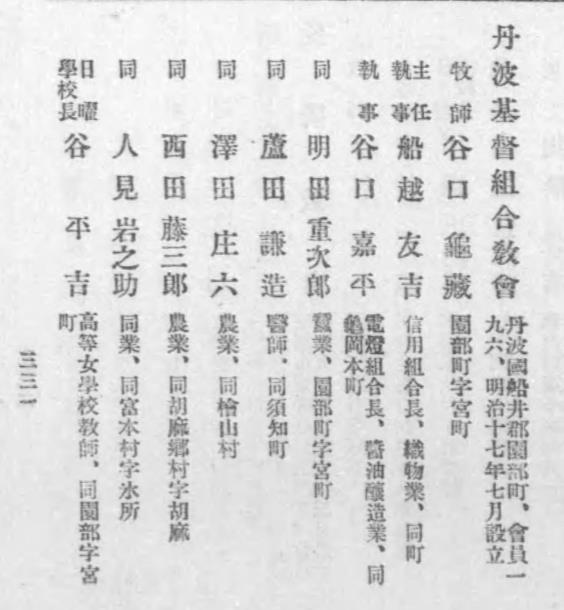 丹波基督組合敎會
丹波國船井郡園部町、會員一
九六、明治十七年七月設立
牧師 谷口龜藏 園部町字宮町
主任執事 船越友吉 信用組合長、織物業、同町
執事 谷口嘉平 電燈組合長、醬油釀造業、同
龜岡本町
同 明田重次郎 蠶業、園部町字宮町
同 蘆田謙造 醫師、同須知町
同 澤田庄六 農業、同檜山村
同 西田藤三郎 農業、同胡麻鄕村字胡麻
同 人見岩之助 同業、同富本村字氷所
日曜學校長 谷平吉 高等女學校敎師、同園部字宮
町
三三一